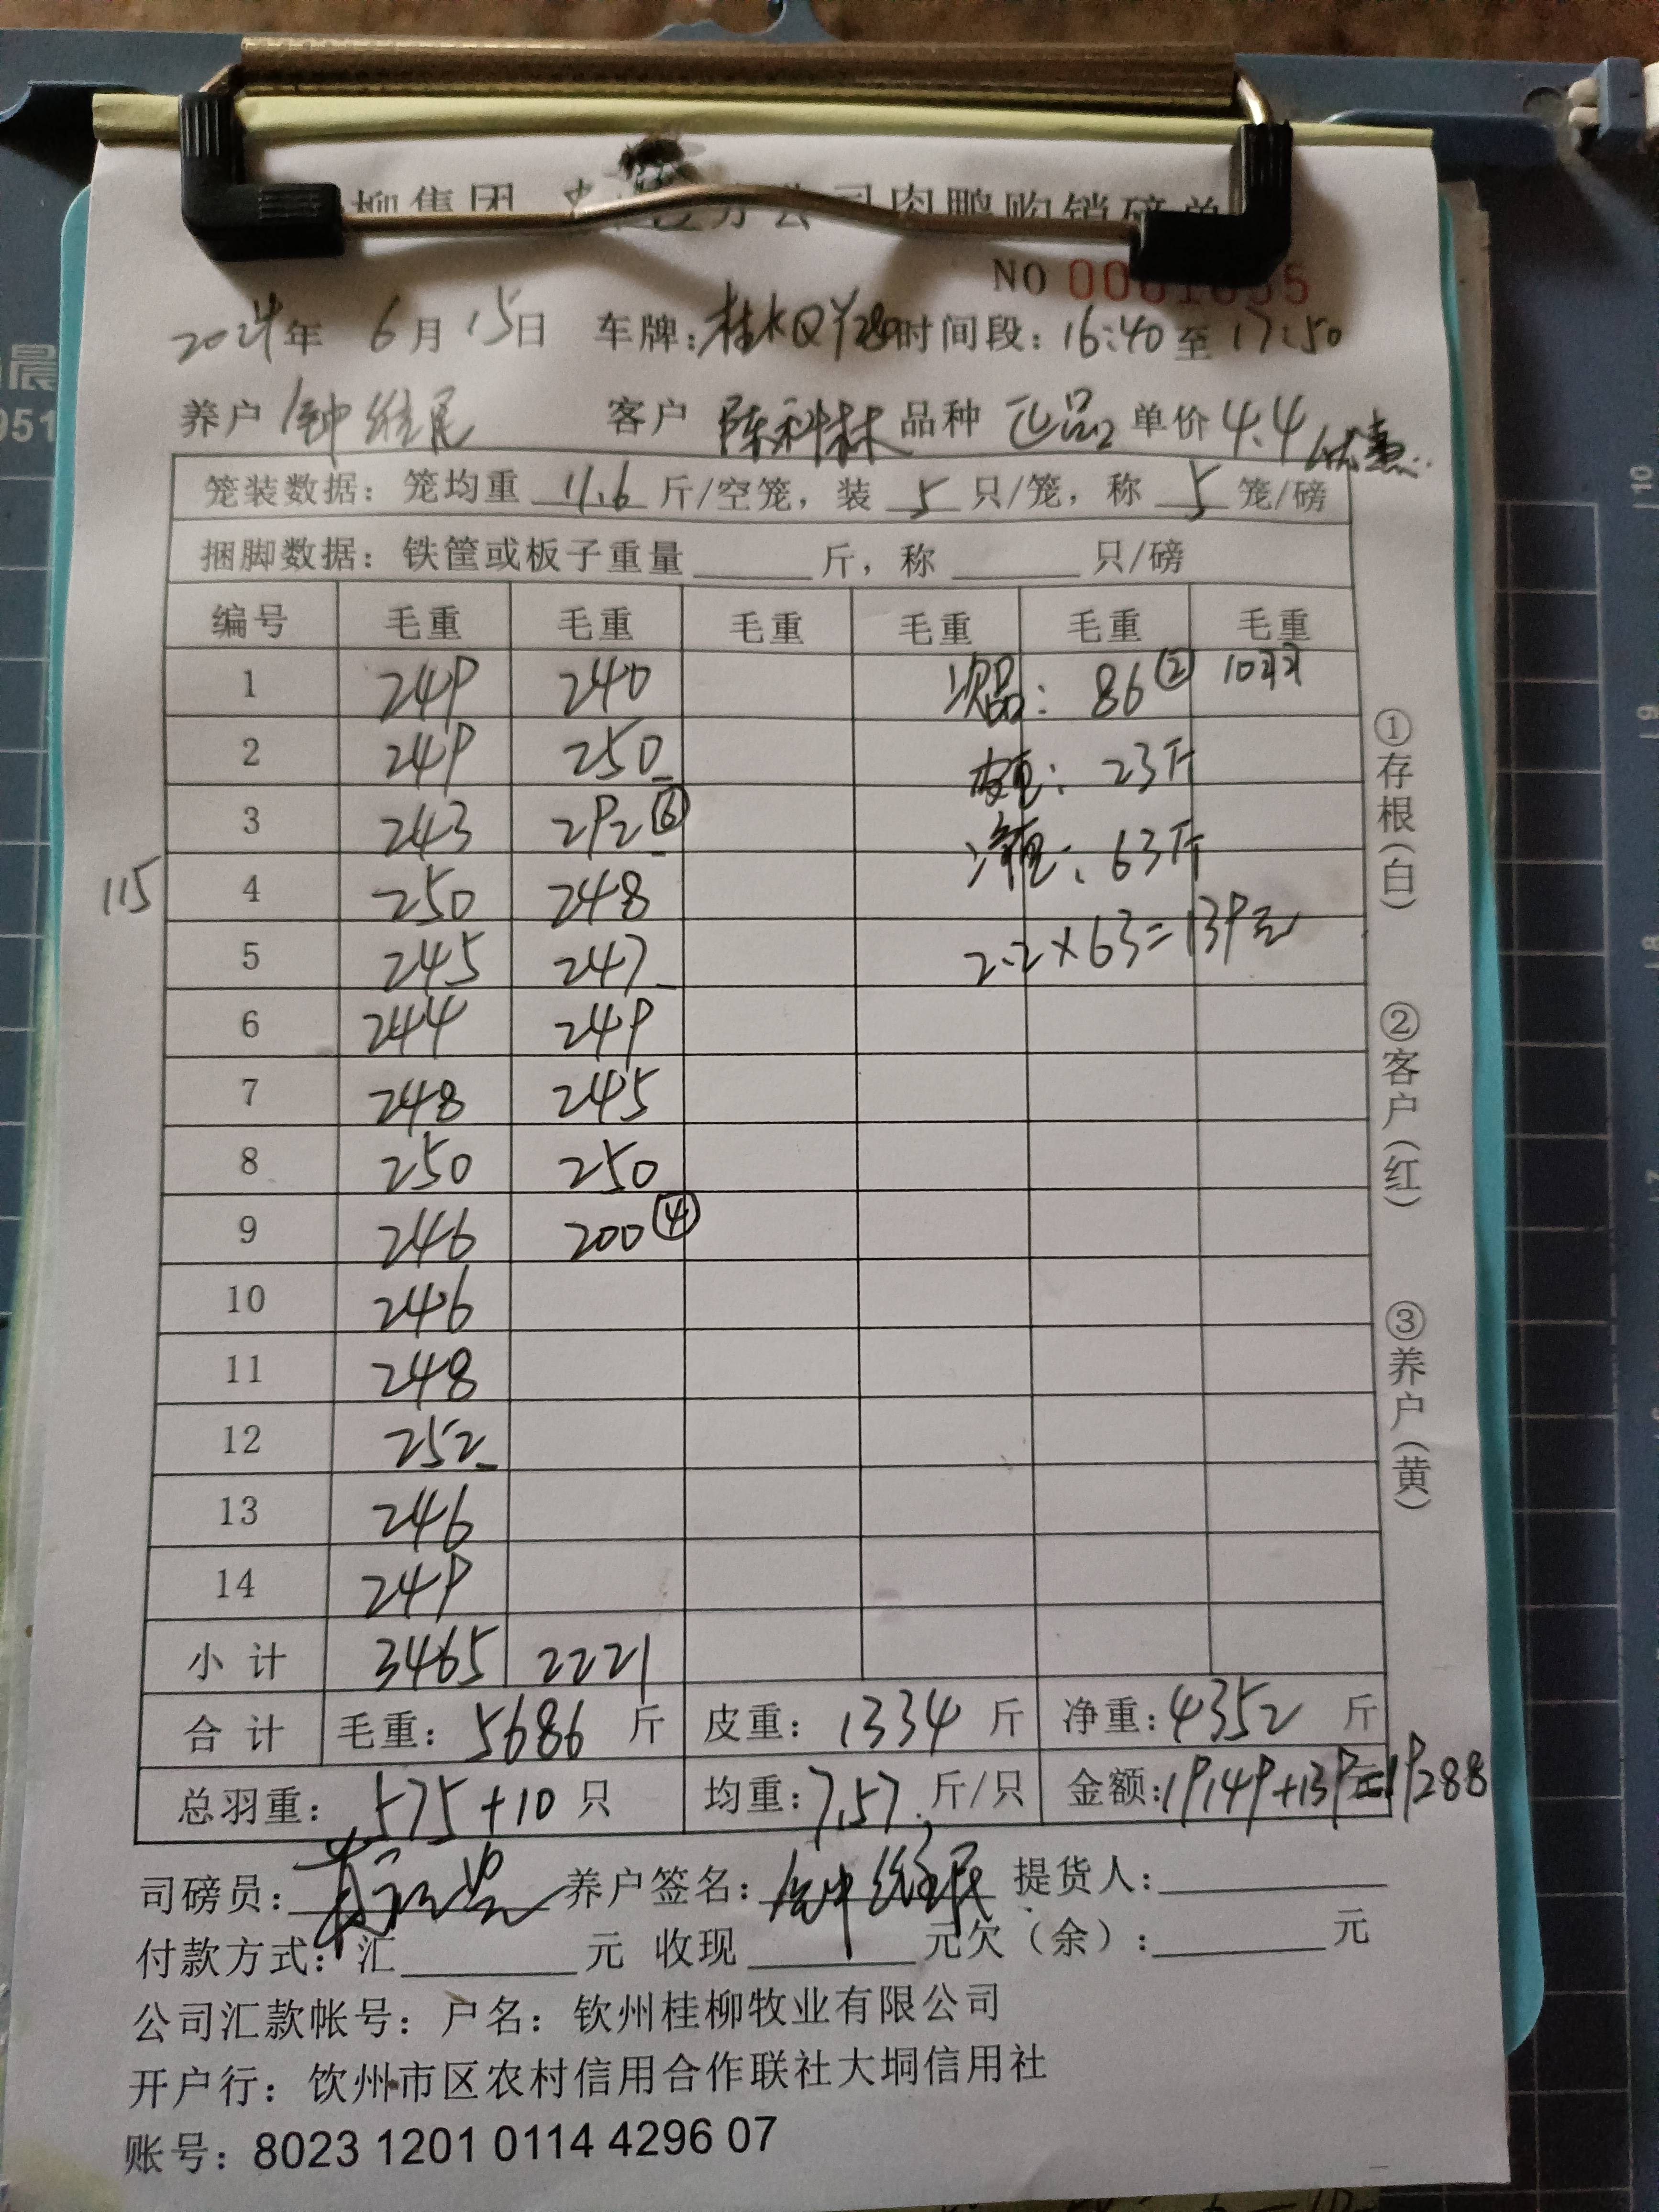 柳集团 分公司肉鸭购销磅单
NO
2024年 6月 15日 车牌: 时间段: 16:40 至 17:50
养户 钟维民 客户 陈科林 品种 正品 单价 4.4 优惠
笼装数据: 笼均重 11.6 斤/空笼, 装 5 只/笼, 称 5 笼/磅
捆脚数据: 铁筐或板子重量 斤, 称 只/磅
编号 毛重 毛重 毛重 毛重 毛重 毛重
1 249 240 次品: 86 ② 10只
2 249 250 皮重: 23斤
3 243 292 ⑥ 净重: 63斤
115 4 250 248
5 245 247 2.2×63=139元
6 244 249
7 248 245
8 250 250
9 246 200 ④
10 246
11 248
12 252
13 246
14 249
小计 3465 2221
合计 毛重: 5686 斤 皮重: 1334 斤 净重: 4352 斤
总羽重: 575+10 只 均重: 7.57 斤/只 金额: 19149+139=19288
司磅员: 养户签名: 钟维民 提货人:
付款方式: 汇 元 收现 元欠(余): 元
公司汇款帐号: 户名: 钦州桂柳牧业有限公司
开户行: 饮州市区农村信用合作联社大垌信用社
账号: 8023 1201 0114 4296 07
①存根(白)
②客户(红)
③养户(黄)
晨
951
10
9
8
7